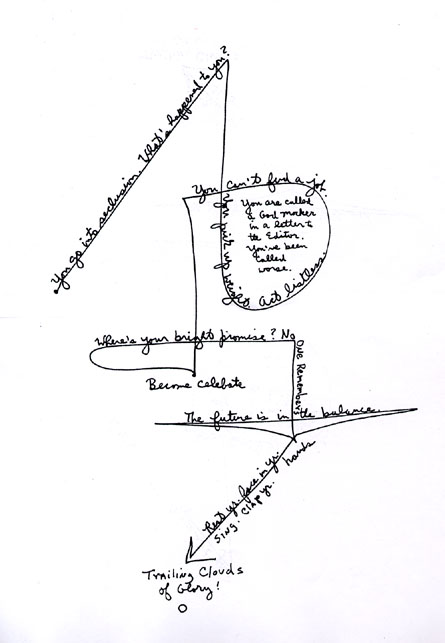 You go into seclusion. What's happened to you?
You can't find a job.
You pick up weight
Act listless.
You are called
a God mocker
in a letter to
the Editor.
You've been
called
worse.
Where's your bright promise? No
one Remembers
Become celebate
The future is in the balance.
Rest yr. face in yr. hands
Sing. Clap yr.
Trailing Clouds
of Glory!